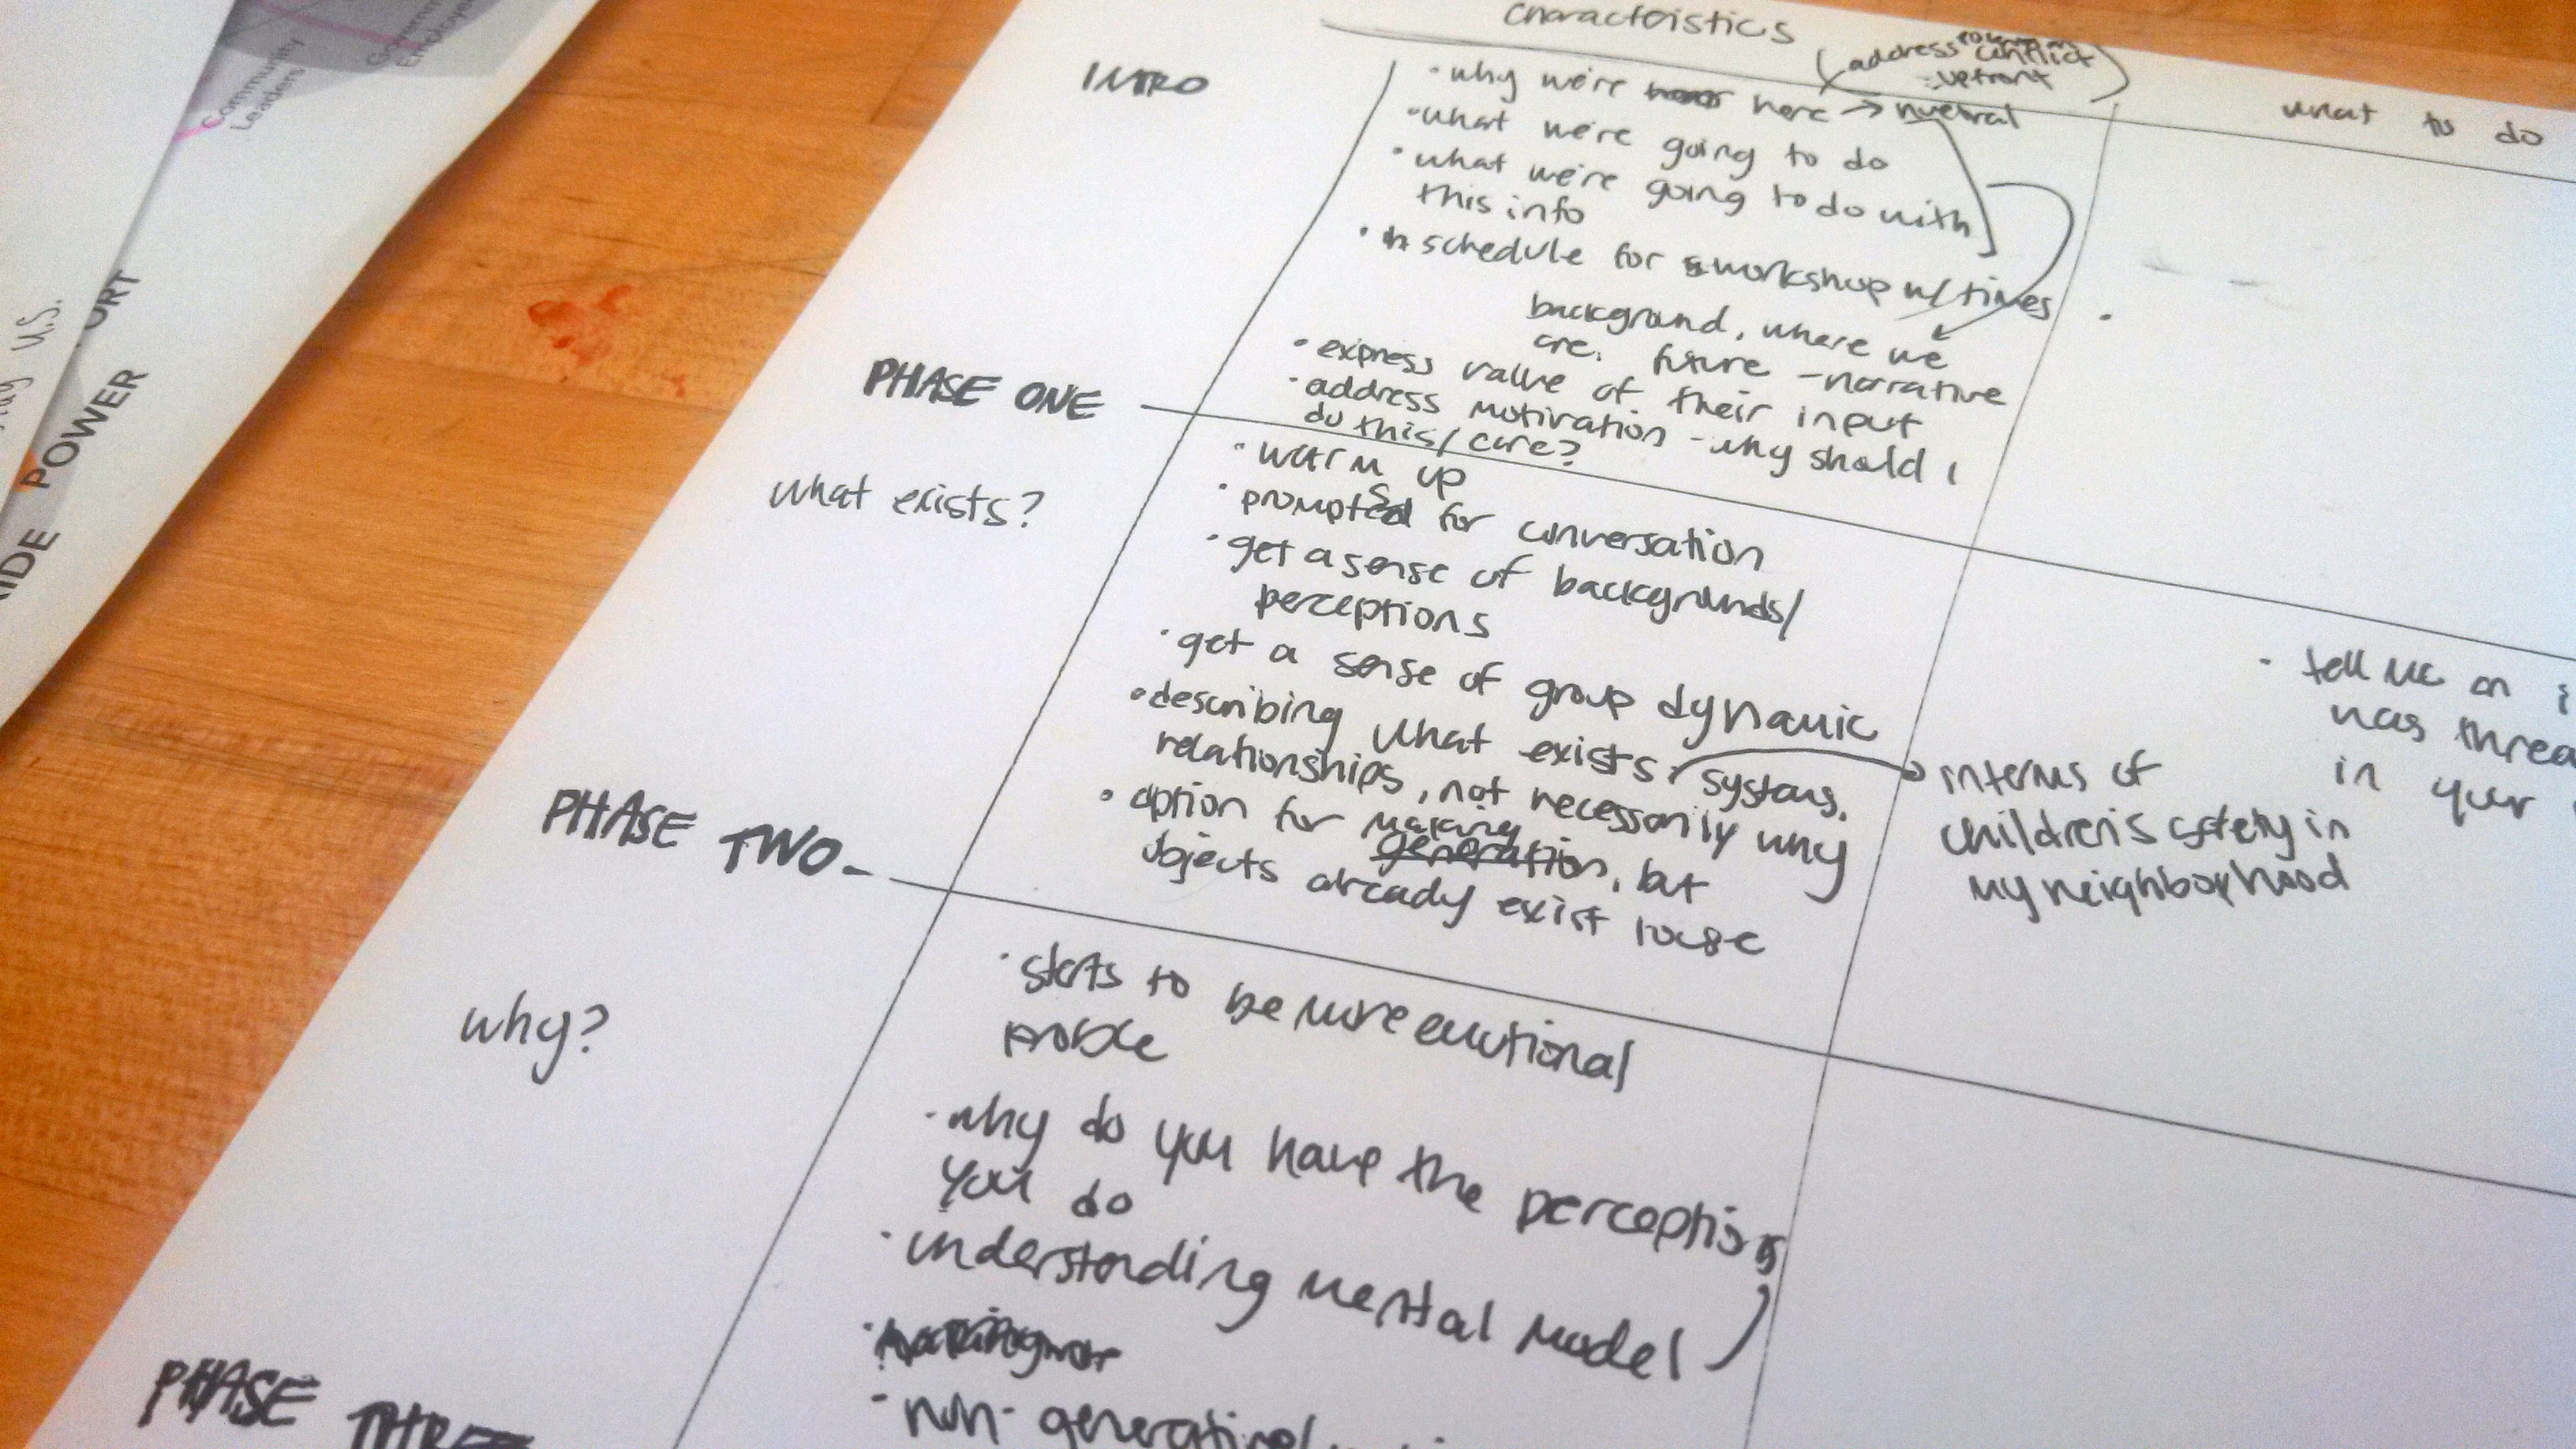 Community
Leaders
Employe
U.S.
PORT
POWER
IDE
characteristics
(address conflict
upfront)
what to do
INTRO
• why we're here → nuetral
• what we're going to do
• what we're going to do with
this info
• schedule for workshop w/ times
background, where we
are, future - narrative
• express value of their input
• address motivation - why should I
do this/care?
PHASE ONE
what exists?
• warm up
• prompts for conversation
• get a sense of backgrounds/
perceptions
• get a sense of group dynamic
• describing what exists: systems,
relationships, not necessarily why
• option for making
generation, but
objects already exist
interms of
children's safety in
my neighborhood
• tell me an
has threa
in your
PHASE TWO-
why?
• starts to be more emotional
probe
• why do you have the perceptions
you do
• understanding mental model
• non-generative/
PHASE THREE